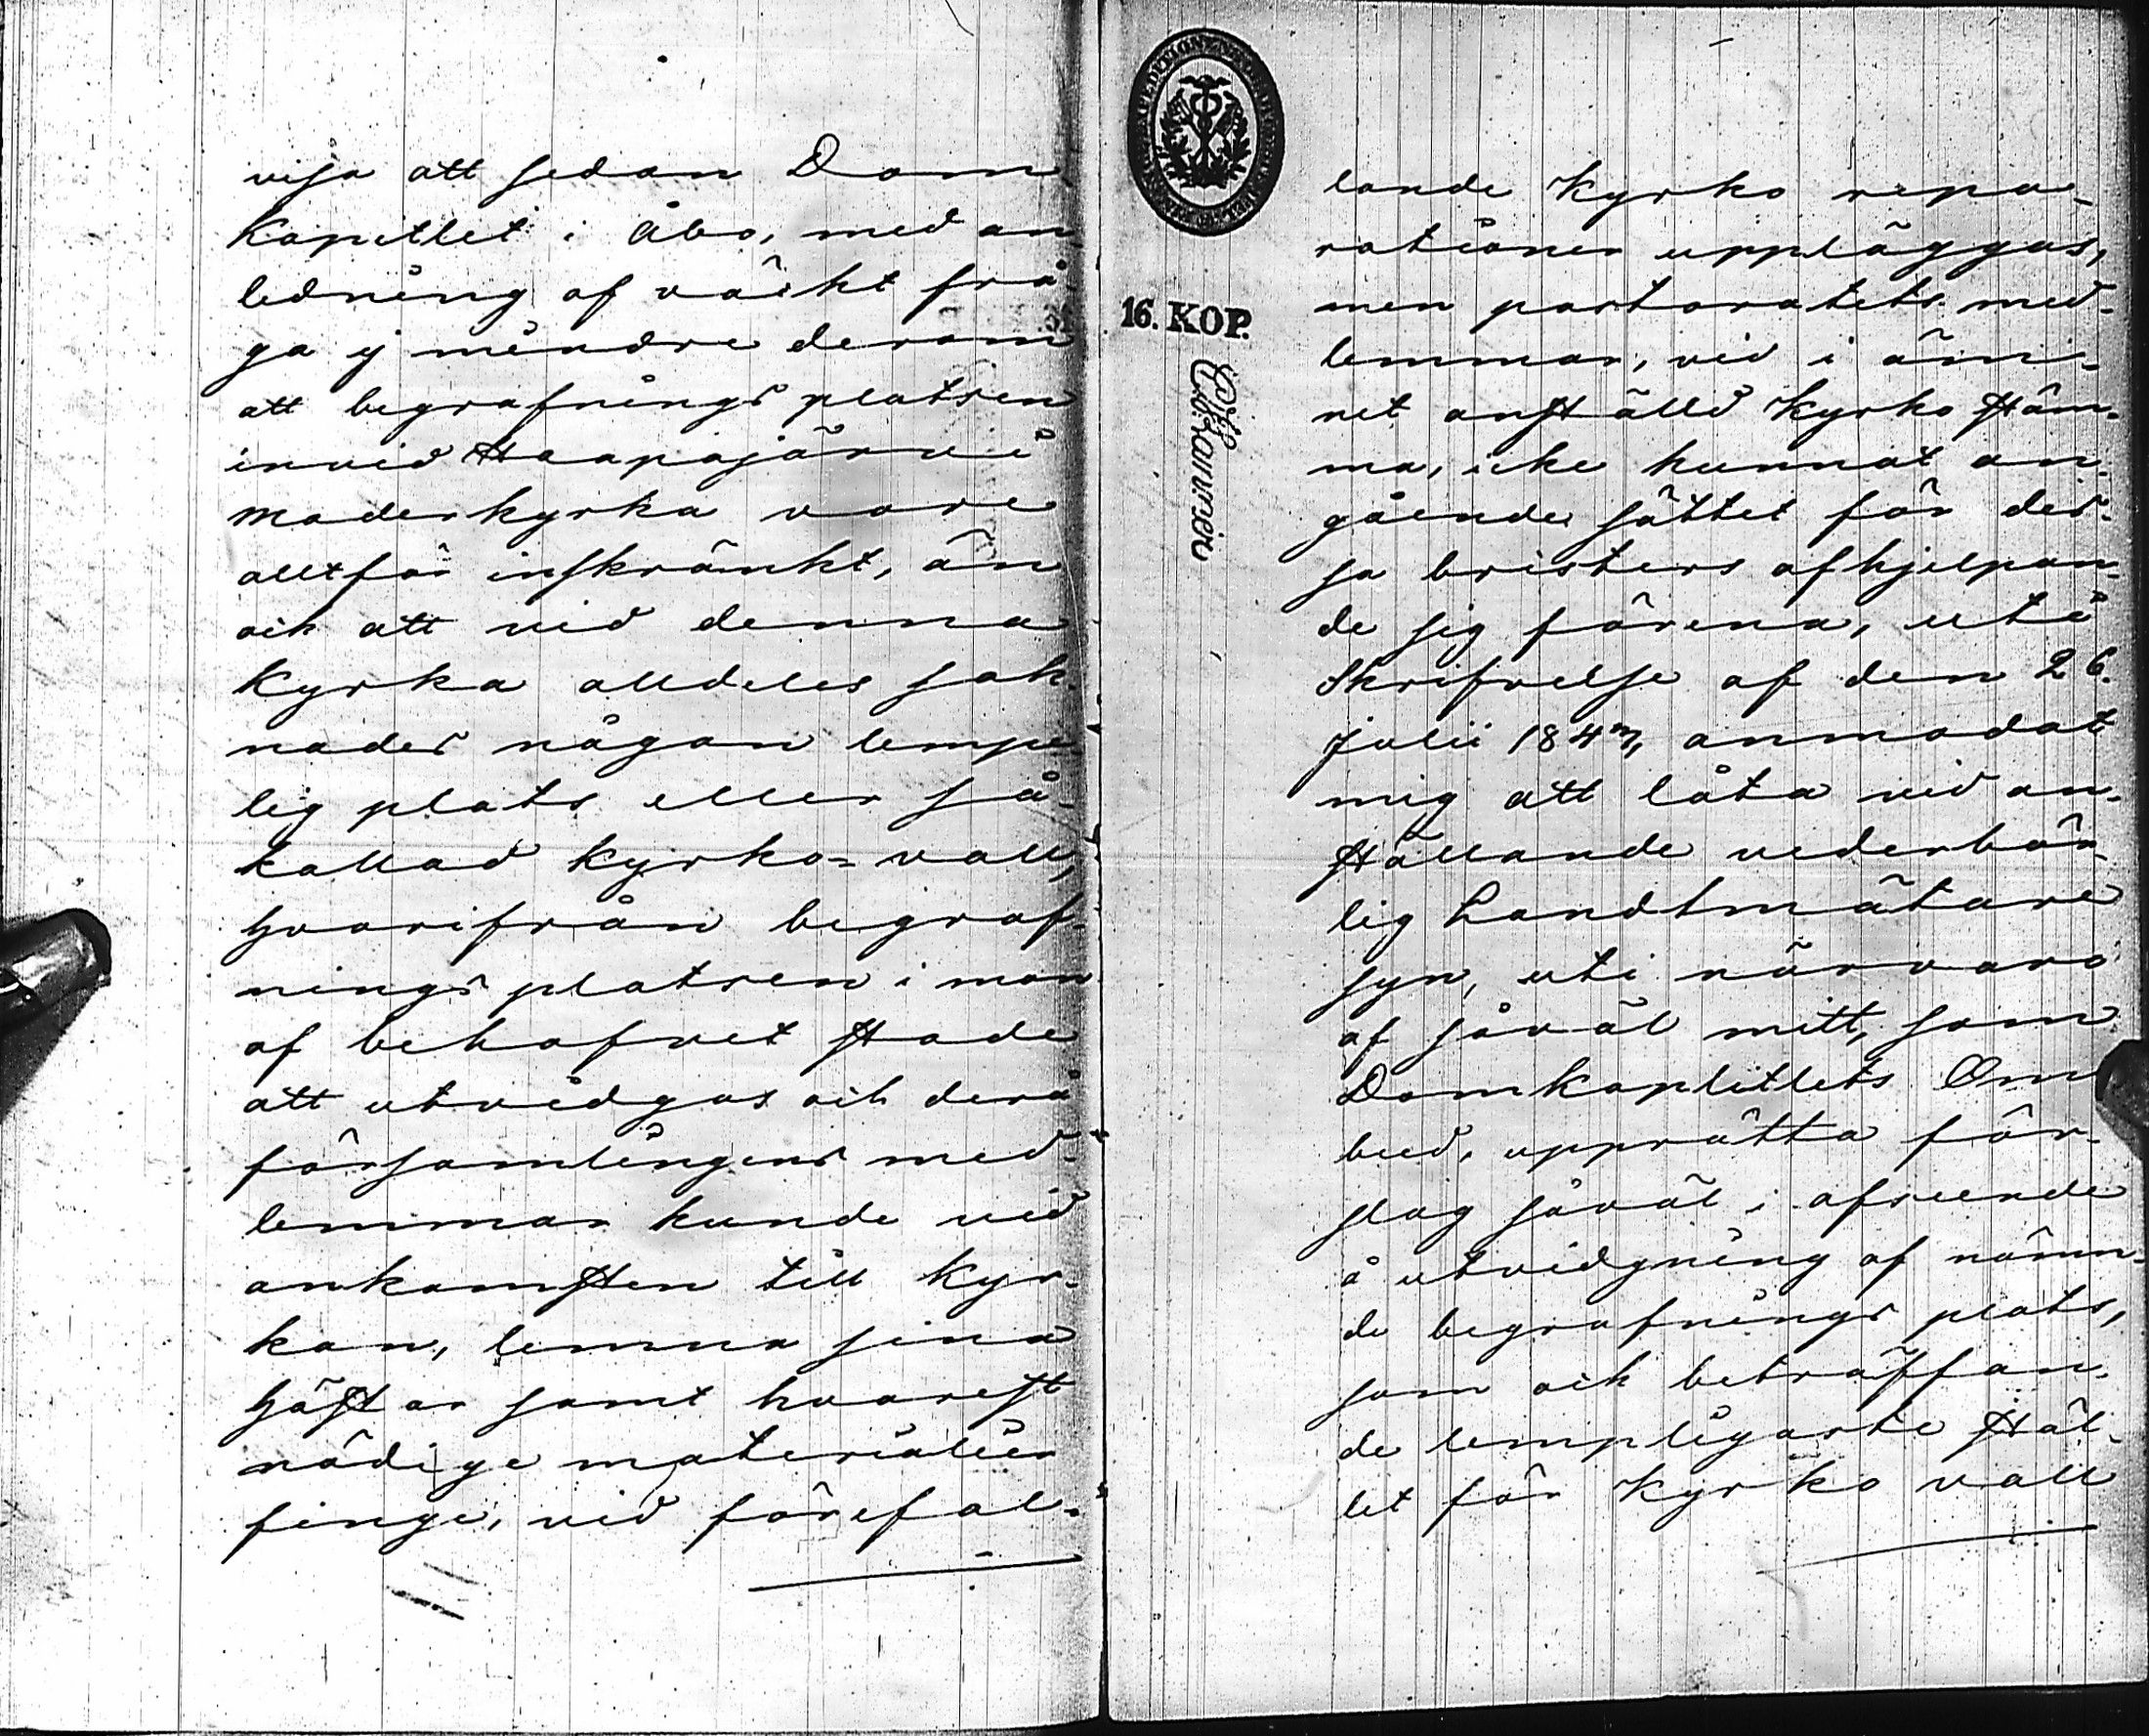 visa att sedan Dom
Kapitlet i Åbo, med an
ledning af väckt frå
ga ej mindre derom
att begrafnings platsen
invid Haapajärvi
Moderkyrka vore
alltför inskränkt, än
och att vid denna
Kyrka alldeles sak
nades någon lämpe
lig plats eller så
kallad Kyrko= vall,
hvarifrån begraf
nings platsen i mon
af behofvet stode
att utvidgas och derå
församlingens med-
lemmar kunde vid
ankomsten till Kyr-
kan, lemna sina
hästar samt hvarest
nödige materialier
finge, vid förefal-
16. KOP.
lande Kyrko repa-
rationer uppläggas,
men pastoratets med-
lemmar, vid i äm-
net anställd Kyrko stäm-
ma, icke kunnat an-
gående sättet för des-
sa bristers afhjelpan-
de sig förena, uti
Skrifvelse af den 26.
Julii 184 anmodat
mig att låta vid an-
ställande vederbör-
lig Landtmätare
syn, uti närvaro
af såväl mitt, som
Domkaplitlets Om
bud, upprätta för-
slag såväl i afseende
å utvidgning af nämn-
de begrafnings plats,
som och beträffan-
de lempligaste stäl-
let för Kyrko vall